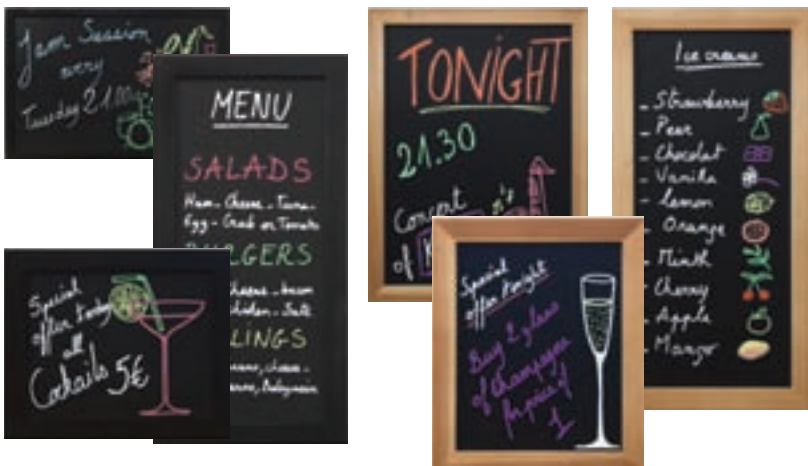 Jam Session
every
Tuesday 21.00
MENU
SALADS
Ham - Cheese - Tuna -
Egg - Crab or Tomato
BURGERS
Cheese - bacon
Chicken - Sate
LINGS
cheese -
Bolognaise
Special
offer today
all
Cocktails 5€
TONIGHT
21.30
Concert
of
Special
offer tonight
Buy 2 glass
of champagne
for price of
1
Ice creams
- Strawberry
- Pear
- Chocolat
- Vanilla
- lemon
- Orange
- Minth
- Cherry
- Apple
- Mango